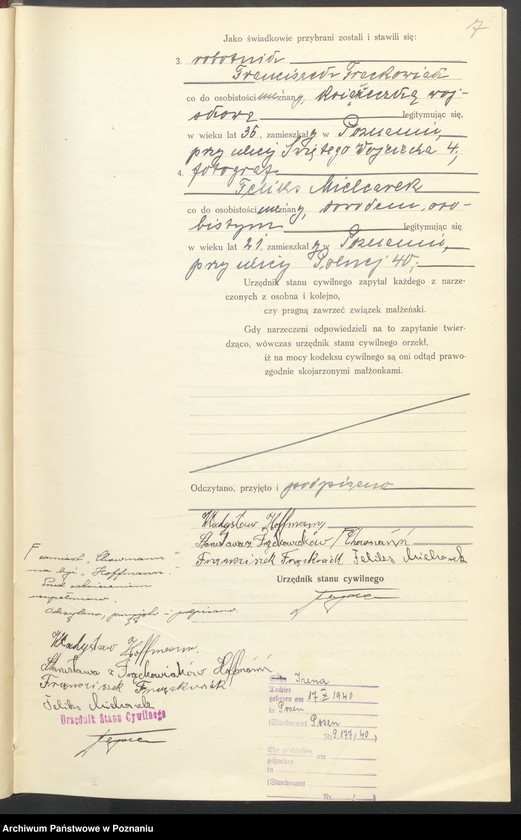 7
Jako świadkowie przybrani zostali i stawili się:
3. robotnik
Franciszek Frąckowiak
co do osobistości znany, książeczką woj-
skową legitymując się,
w wieku lat 36, zamieszkały w Poznaniu,
przy ulicy Świętego Wojciecha 4,
4. fotograf
Feliks Mielcarek
co do osobistości znany, dowodem oso-
bistym legitymując się
w wieku lat 21, zamieszkały w Poznaniu,
przy ulicy Polnej 40,
Urzędnik stanu cywilnego zapytał każdego z narze-
czonych z osobna i kolejno,
czy pragną zawrzeć związek małżeński.
Gdy narzeczeni odpowiedzieli na to zapytanie twier-
dząco, wówczas urzędnik stanu cywilnego orzekł,
iż na mocy kodeksu cywilnego są oni odtąd prawo-
zgodnie skojarzonymi małżonkami.
Odczytano, przyjęto i podpisano
Władysław Hoffmann
Stanisława z Frąckowiaków
Franciszek Frąckowiak Feliks Mielcarek
Urzędnik stanu cywilnego
zamiast
"Hoffmann"
Odczytano, przyjęto i podpisano
Władysław Hoffmann.
Stanisława z Frąckowiaków Hoffmann
Franciszek Frąckowiak
Feliks Mielcarek
Urzędnik Stanu Cywilnego
Irena
Tochter
geboren am 17 1940
in Posen
(Standesamt Posen
Nr. 9177/40)
am
gestorben
in
(Standesamt
Nr. /
Archiwum Państwowe w Poznaniu